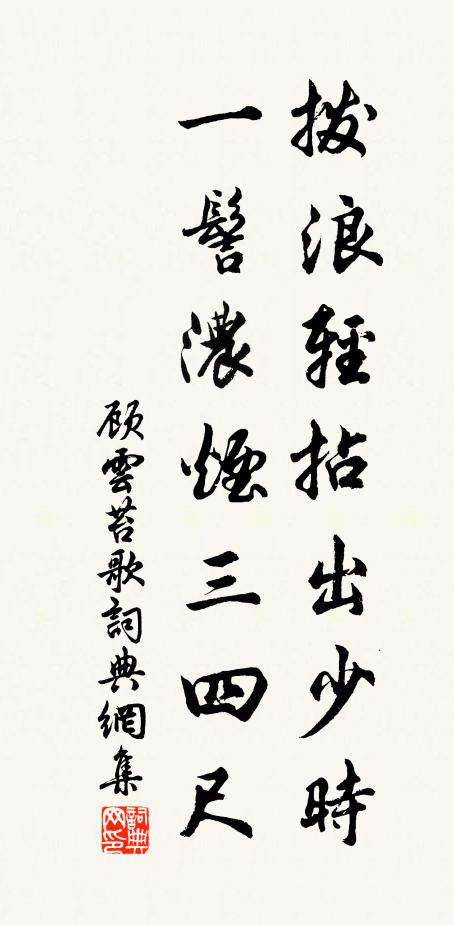 撥浪輕拈出少時
一髻濃煙三四尺
顧雲苔歌詞典網集
詞典网印